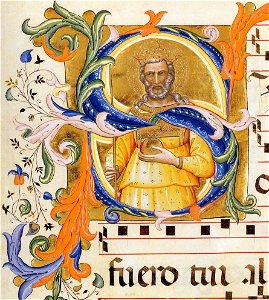 fuero tui al